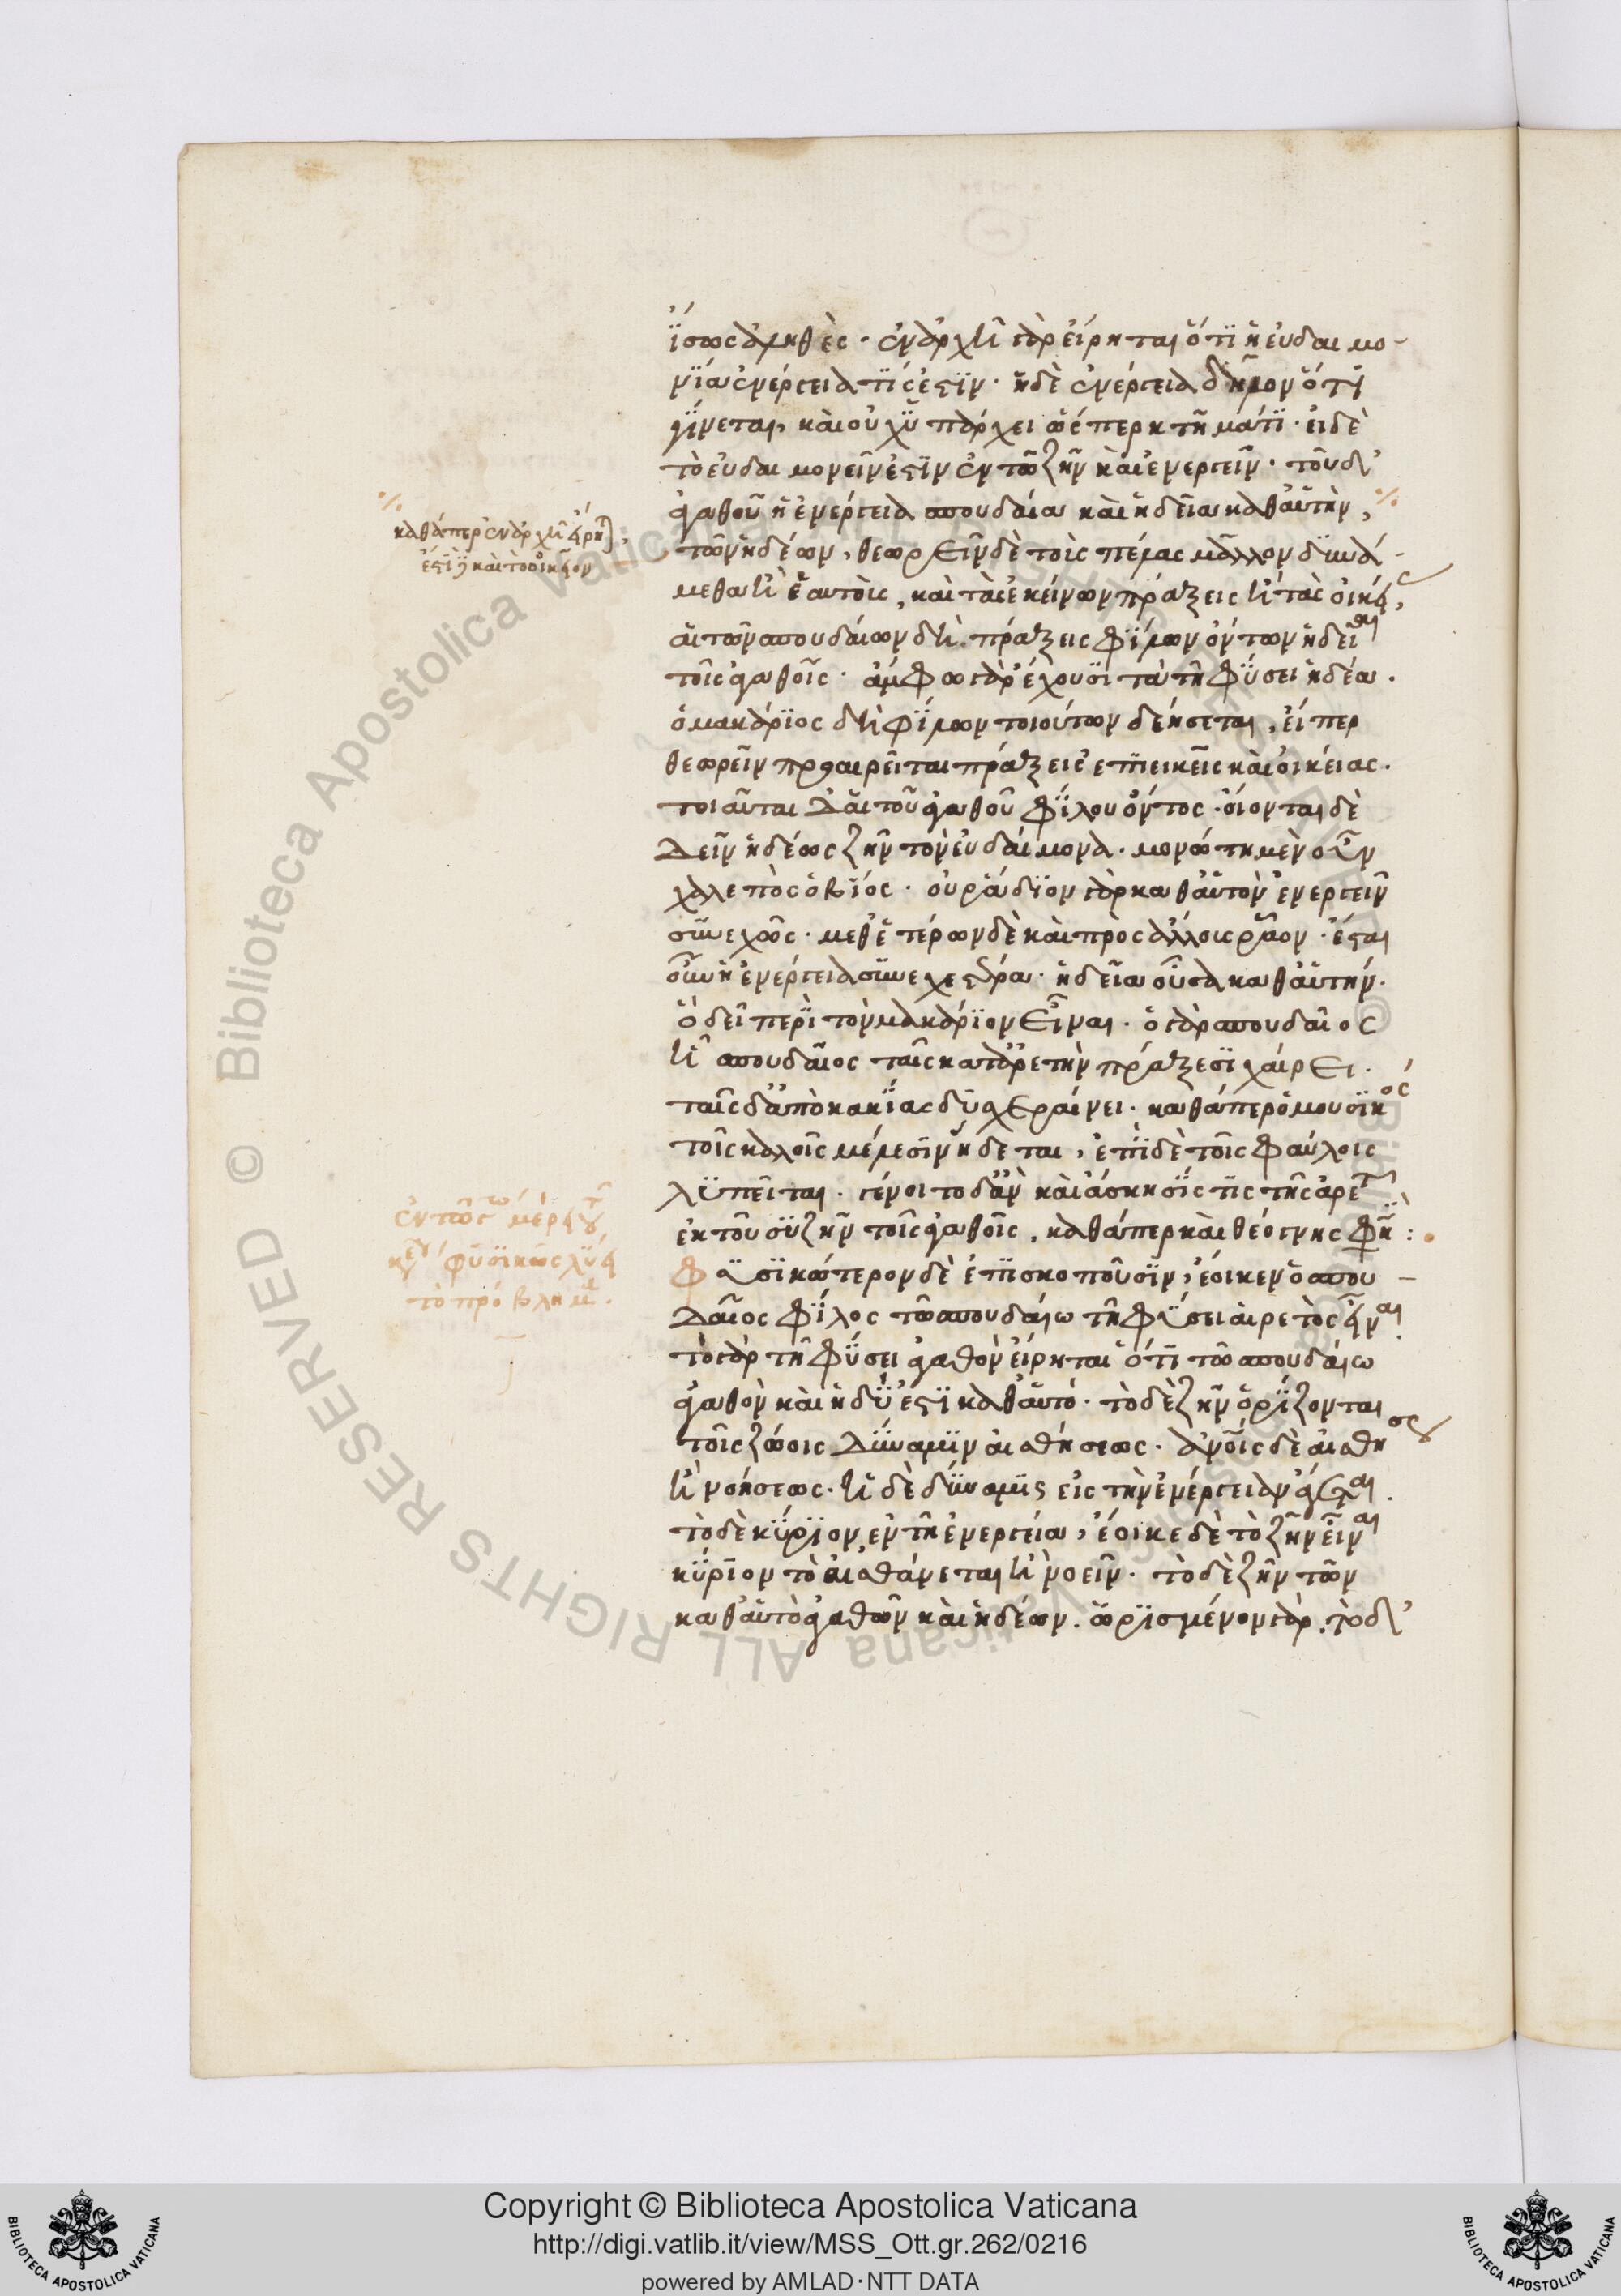 ἴσως ἀληθές· ἐν ἀρχῇ γὰρ εἴρηται ὅτι ἡ εὐδαιμο-
νία ἐνέργειά τίς ἐστιν· ἡ δὲ ἐνέργεια δῆλον ὅτι
γίνεται, καὶ οὐχ ὑπάρχει ὥσπερ κτῆμά τι· εἰ δὲ
τὸ εὐδαιμονεῖν ἐστὶν ἐν τῶ ζῆν καὶ ἐνεργεῖν· τοῦ δ'
ἀγαθοῦ ἡ ἐνέργεια σπουδαία καὶ ἡδεῖα καθ' αὑτὴν,
καθάπερ ἐν ἀρχῇ εἴρηται,
ἔστι δὲ καὶ τὸ οἰκεῖον
τῶν ἡδέων, θεωρεῖν δὲ τοὺς πέλας μᾶλλον δυνά-
μεθα ἢ ἑαυτοὺς, καὶ τὰς ἐκείνων πράξεις ἢ τὰς οἰκείας,
αἱ τῶν σπουδαίων δὴ πράξεις φίλων ὄντων ἡδεῖαι
τοῖς ἀγαθοῖς· ἄμφω γὰρ ἔχουσι τὰ τῆ φύσει ἡδέα.
ὁ μακάριος δὴ φίλων τοιούτων δεήσεται, εἴπερ
θεωρεῖν προαιρεῖται πράξεις ἐπιεικεῖς καὶ οἰκείας.
τοιαῦται δ' αἱ τοῦ ἀγαθοῦ φίλου ὄντος· οἴονται δὲ
δεῖν ἡδέως ζῆν τὸν εὐδαίμονα. μονώτη μὲν οὖν
χαλεπὸς ὁ βίος· οὐ ῥάδιον γὰρ καθ' αὑτὸν ἐνεργεῖν
συνεχῶς· μεθ' ἑτέρων δὲ καὶ πρὸς ἄλλους ῥᾶον· ἔσται
οὖν ἡ ἐνέργεια συνεχεστέρα· ἡδεῖα οὖσα καθ' αὑτήν.
ὃ δεῖ περὶ τὸν μακάριον εἶναι· ὁ γὰρ σπουδαῖος
ἧ σπουδαῖος ταῖς κατ' ἀρετὴν πράξεσι χαίρει.
ταῖς δ' ἀπὸ κακίας δυσχεραίνει· καθάπερ ὁ μουσικὸς
τοῖς καλοῖς μέλεσιν ἥδεται, ἐπὶ δὲ τοῖς φαύλοις
λυπεῖται. γένοιτο δ' ἂν καὶ ἄσκησίς τις τῆς ἀρετῆς
ἐκ τοῦ συζῆν τοῖς ἀγαθοῖς, καθάπερ καὶ θέογνις φησὶ:
φυσικώτερον δὲ ἐπισκοποῦσιν, ἔοικεν ὁ σπου-
δαῖος φίλος τῶ σπουδαίω τῆ φύσει αἱρετὸς εἶναι.
τὸ γὰρ τῆ φύσει ἀγαθὸν εἴρηται ὅτι τῶ σπουδαίω
ἀγαθὸν καὶ ἡδύ ἐστι καθ' αὑτό· τὸ δὲ ζῆν ὁρίζονται
τοῖς ζώοις δυνάμιν αἰσθήσεως· ἀνοις δὲ αἰσθήσεως
ἢ νοήσεως. ἡ δὲ δύναμις εἰς τὴν ἐνέργειαν ἀγεται.
τὸ δὲ κύριον ἐν τῆ ἐνεργεία, ἔοικε δὲ τὸ ζῆν εἶναι
κύριον τὸ αἰσθάνεται ἢ νοεῖν. τὸ δὲ ζῆν τῶν
καθ' αὑτὸ ἀγαθῶν καὶ ἡδέων. ὡρισμένον γὰρ. τὸ δ'
φυσικῶς λύει
τὸ πρόβλημα.
Copyright © Biblioteca Apostolica Vaticana
http://digi.vatlib.it/view/MSS_Ott.gr.262/0216
powered by AMLAD·NTT DATA
BIBLIOTECA APOSTOLICA VATICANA
BIBLIOTECA APOSTOLICA VATICANA
© Biblioteca Apostolica Vaticana ALL RIGHTS RESERVED